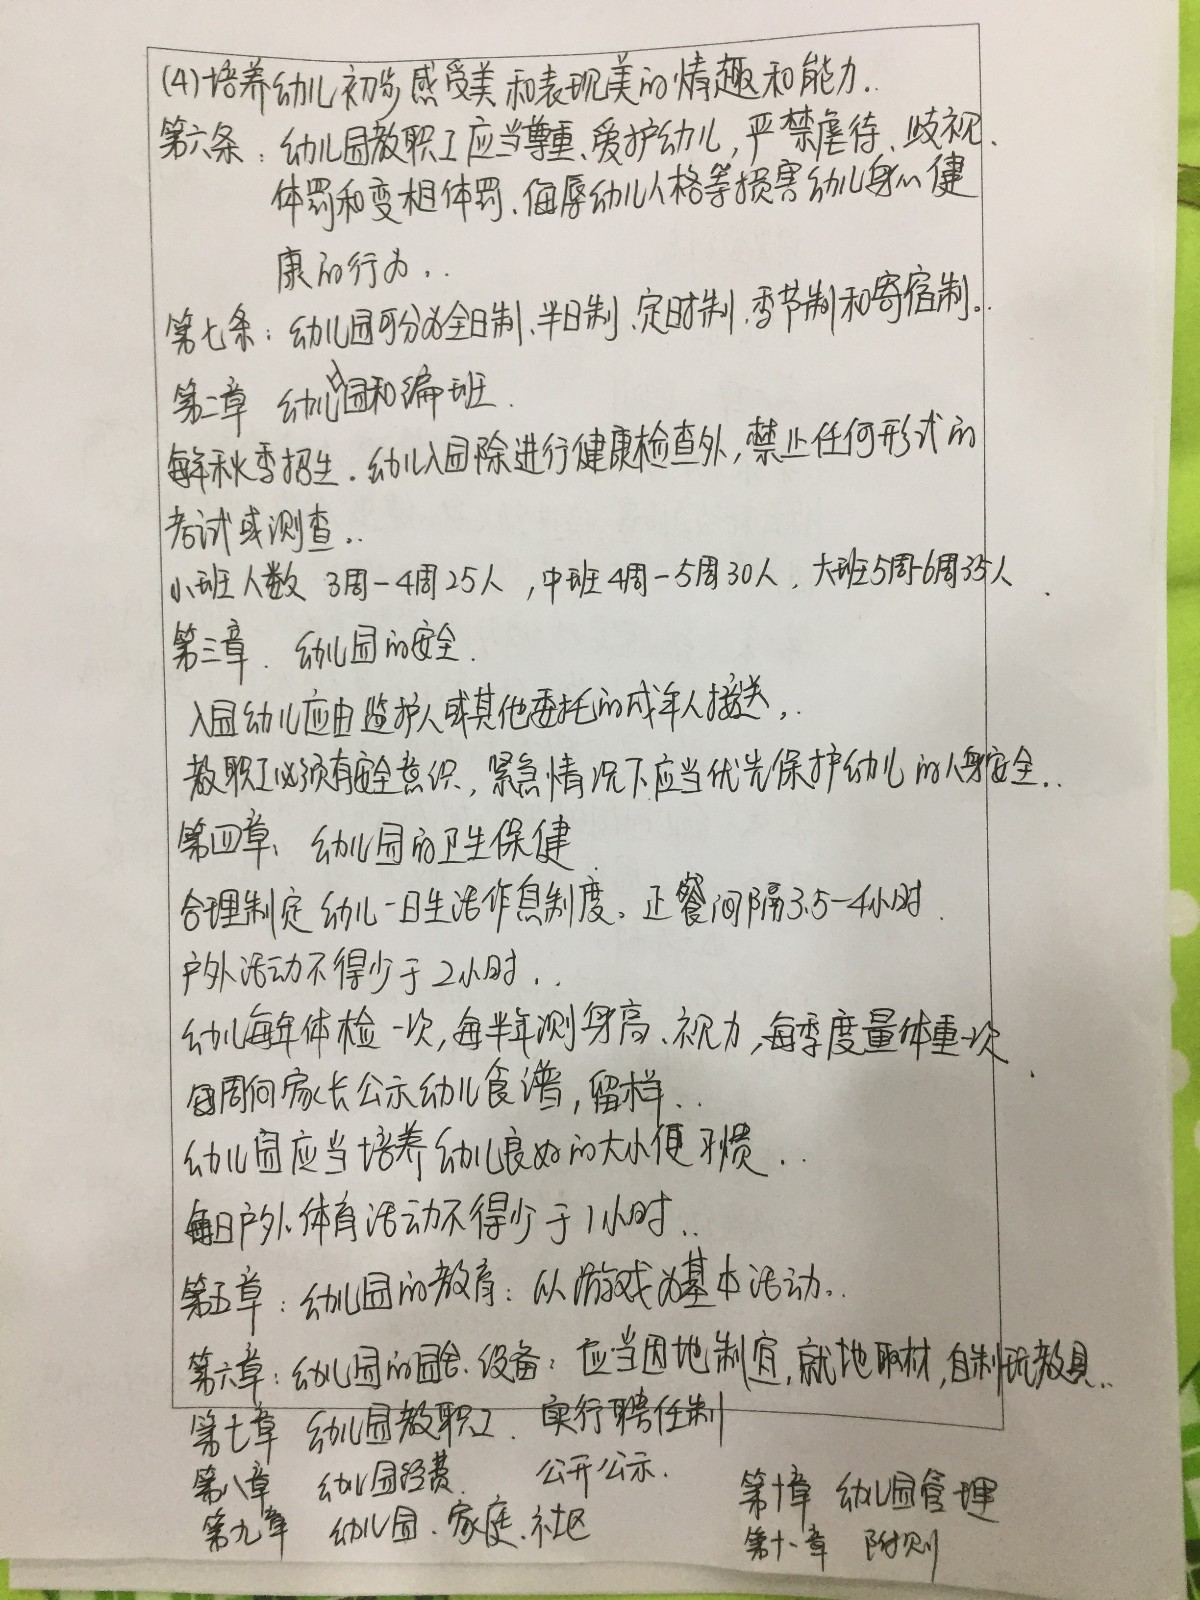 (4)培养幼儿初步感受美和表现美的情趣和能力..
第六条：幼儿园教职工应当尊重、爱护幼儿，严禁虐待、歧视、
体罚和变相体罚、侮辱幼儿人格等损害幼儿身心健
康的行为...
第七条：幼儿园可分为全日制、半日制、定时制、季节制和寄宿制..
第二章 幼儿入园和编班.
每年秋季招生.幼儿入园除进行健康检查外，禁止任何形式的
考试或测查..
小班人数 3周-4周25人，中班4周-5周30人、大班5周-6周35人.
第三章. 幼儿园的安全.
入园幼儿应由监护人或其他委托的成年人接送..
教职工必须有安全意识，紧急情况下应当优先保护幼儿的人身安全..
第四章、幼儿园的卫生保健
合理制定幼儿一日生活作息制度。正餐间隔3.5-4小时.
户外活动不得少于2小时..
幼儿每年体检一次，每半年测身高、视力，每季度量体重一次.
每周向家长公示幼儿食谱，留样..
幼儿园应当培养幼儿良好的大小便习惯..
每日户外体育活动不得少于1小时..
第五章：幼儿园的教育：从游戏为基本活动..
第六章：幼儿园的园舍、设备：应当因地制宜，就地取材，自制玩教具..
第七章 幼儿园教职工. 实行聘任制
第八章 幼儿园经费. 公开公示.
第九章 幼儿园、家庭、社区
第十章 幼儿园管理
第十一章 附则